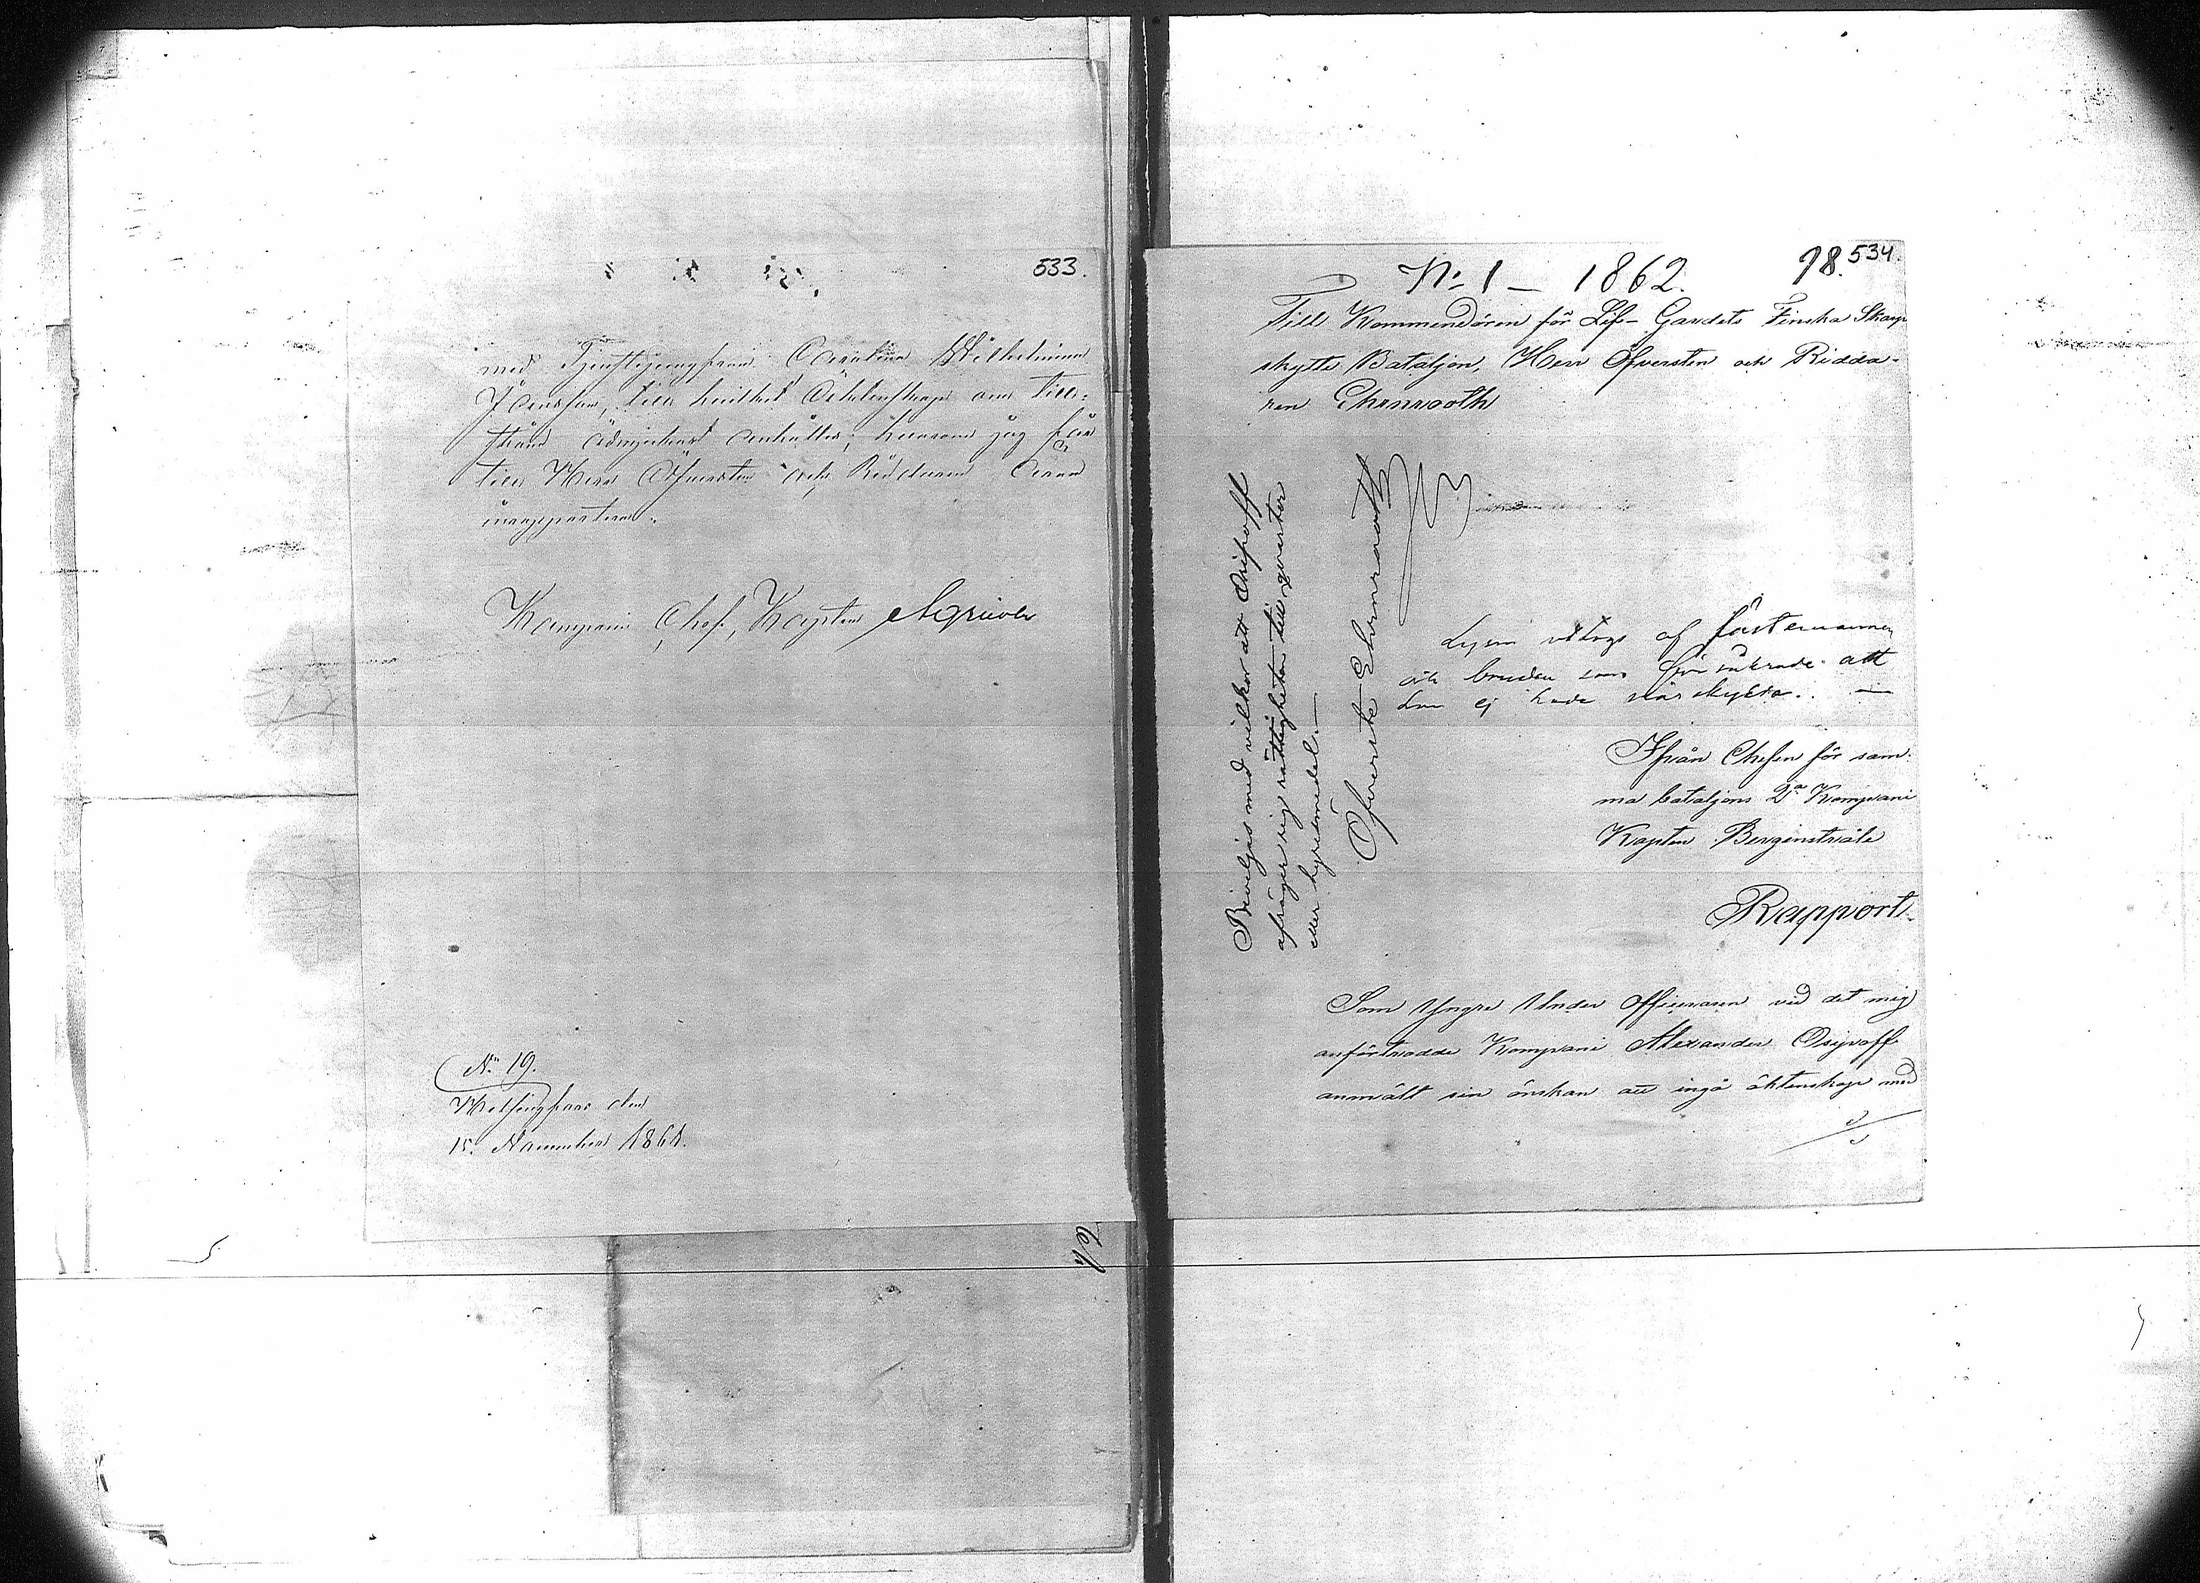 533.
med Tjensteqvinfran Carolina Wilhelmina
till hvilket Äktenskap om till-
stånd ödmjukast anhålles; hvarom jag får
till Herr Öfversten och Riddaren äran
inrapportera.
Kompani Chef, Kapten
No 19.
Helsingfors den
15. November 1861.
534.
98.
No 1 — 1862.
Till Kommendören för Lif-Gardets Finska Skarp
skytte Bataljon, Herr Öfversten och Ridda-
ren Ehrnrooth
Beviljas med vilkor att Osipoff
afsäger sig rättigheten till qvarter
eller hyresmedel.—
Öfverste Ehrnrooth
Lysn uttogs af fästemannen
och bruden som försäkrade att
den ej hade
Ifrån Chefen för sam-
ma bataljons 2a Kompani
Kapten Bergenstråle
Rapport.
Som Yngre Under Officeraren vid det mig
anförtrodde Kompani Alexander Osipoff
anmält sin önskan att ingå äktenskap med